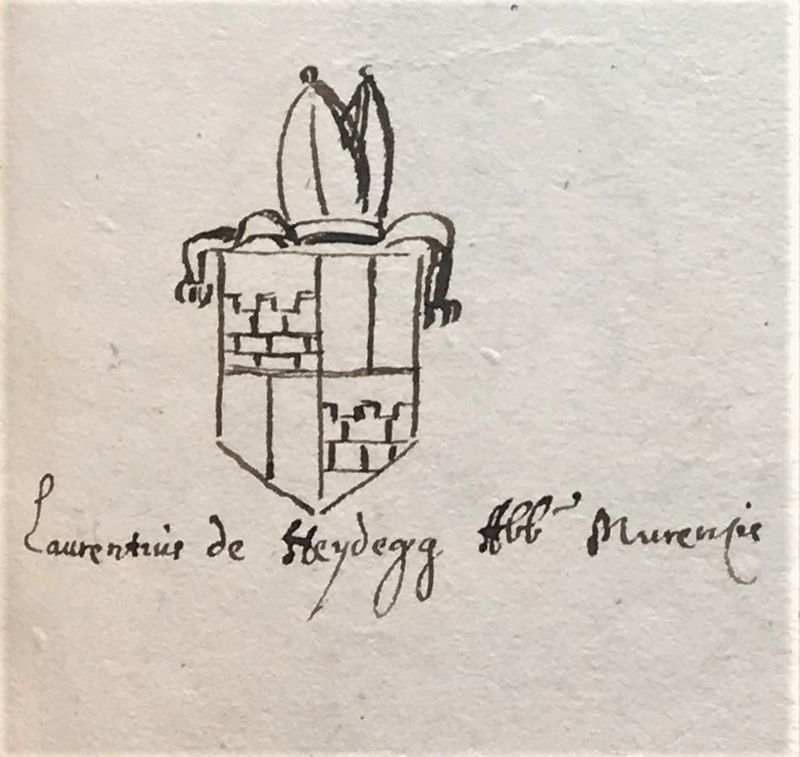 Laurentius de Heydegg Abb~ Murensis